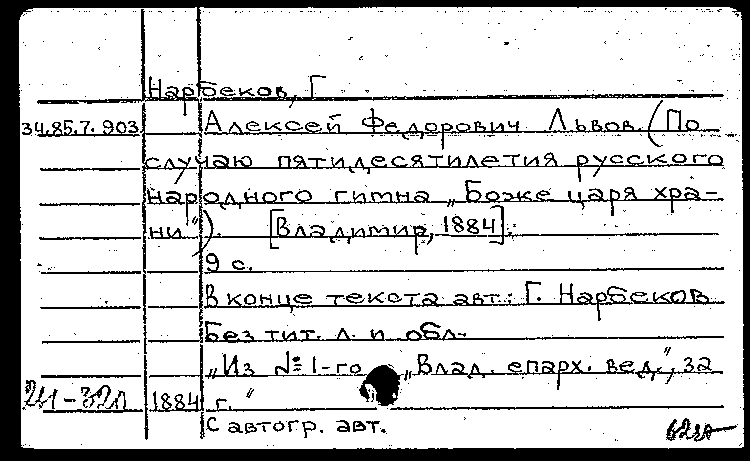 Нарбеков, Г
34.85.7.903 Алексей Федорович Львов. (По
случаю пятидесятилетия русского
народного гимна „Боже царя хра-
ни"). [Владимир, 1884].
9 с.
В конце текста авт.: Г. Нарбеков
Без тит. л. и обл.
„Из № 1-го „Влад. епарх. вед.", за
1884 г."
С автогр. авт.